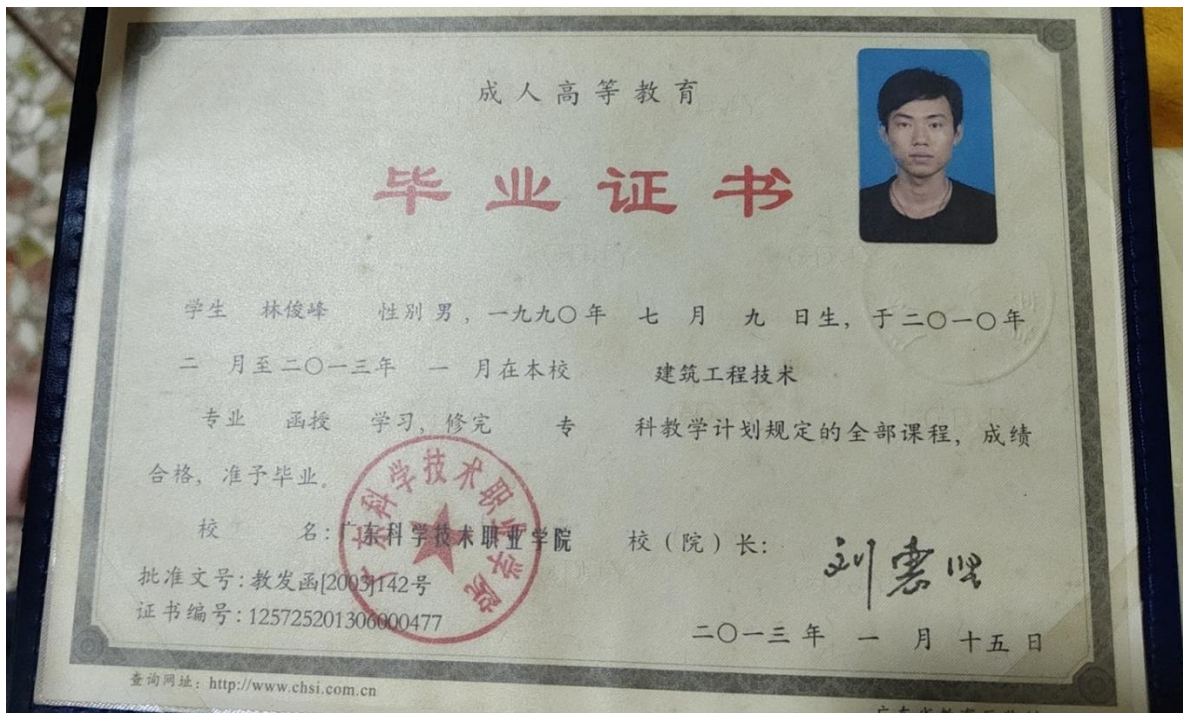 成人高等教育
毕业证书
学生 林俊峰 性别 男，一九九〇年 七 月 九 日生，于二〇一〇年
二 月至二〇一三年 一 月在本校 建筑工程技术
专业 函授 学习，修完 专 科教学计划规定的全部课程，成绩
合格，准予毕业。
校 名：广东科学技术职业学院 校（院）长：
刘
批准文号：教发函[2003]142号
证书编号：125725201306000477
二〇一三年 一 月 十五 日
广东科学技术职业学院
查询网址：http://www.chsi.com.cn